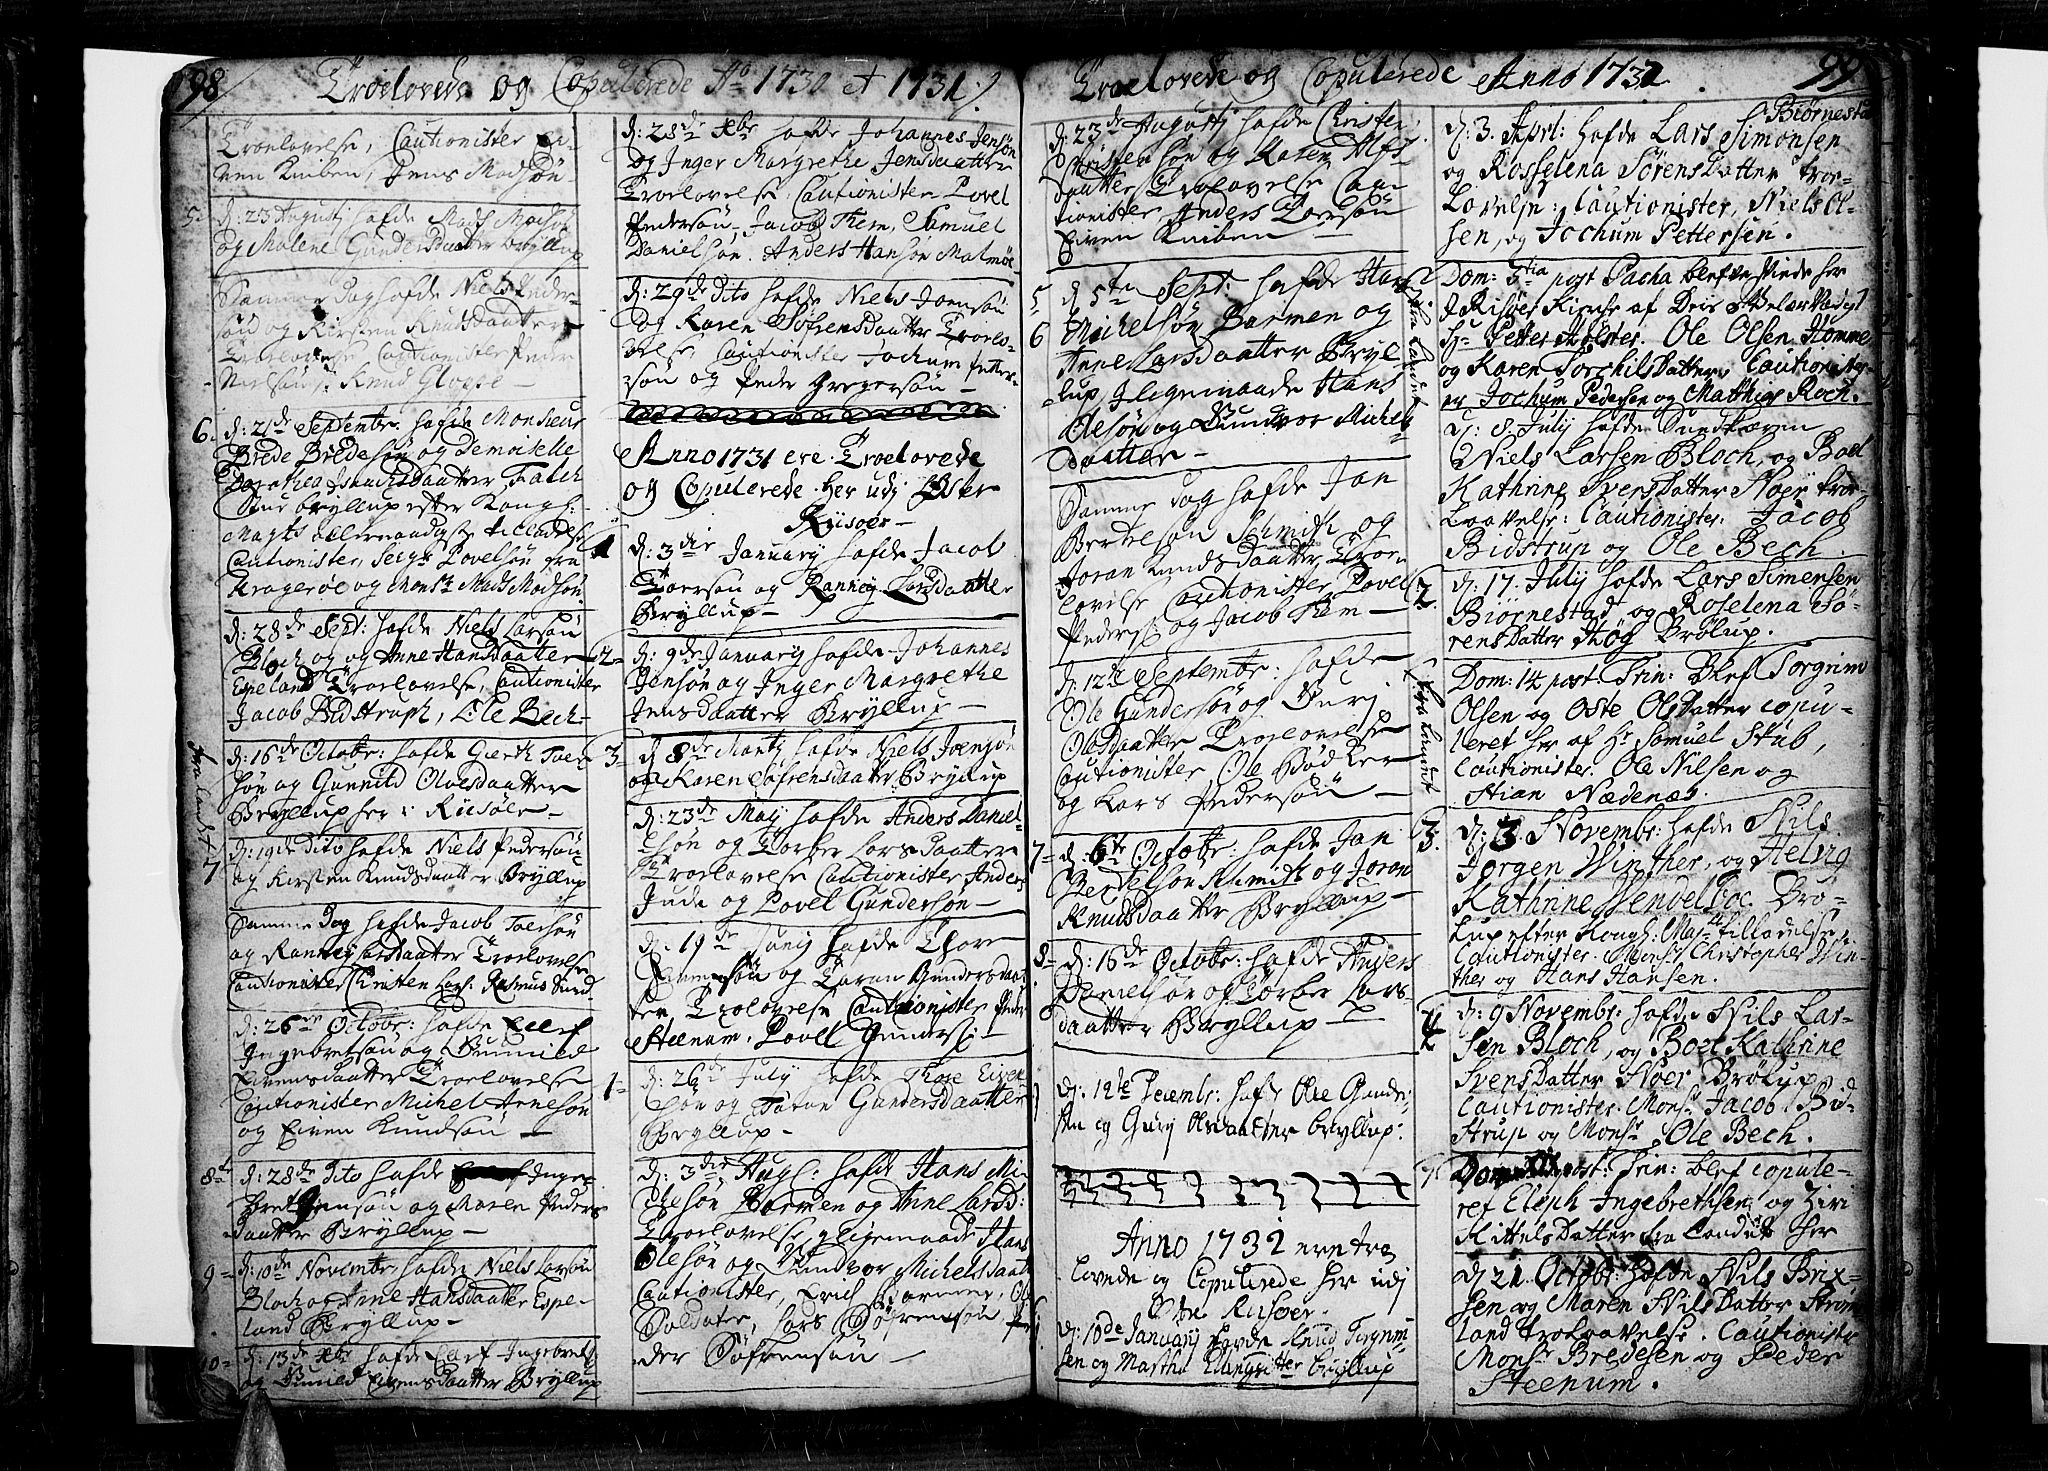 98
Troelovede og Copulerede Ao 1730 et 1731
Troelovelse, Cautionister Ei-
ven Kniben, Jens Madsøn
5. d: 23 Augustj hafde Mads Madsøn
og Malene Gundersdaatter Bryllup
Samme dag hafde Niels Peder-
søn og Kirsten Knudsdaatter
Troelovelse Cautionister Peder
Nielsøn Knud Gloppe
6. d: 21de Septembr. hafde Monsieur
Brede Bredesøn og Demoiselle
Dorothea Isachsdaatter Falch
Bryllup efter Kongl:
Mayts allernaadigste tilladelse
Cautionister, Povelsøn fra
Kragerøe og Monsr Mads Madsøn.
d: 28de Sept: hafde Niels Larsøn
Bloch og og Anne Hansdaatter
Epeland Troelovelse, Cautionister
Jacob Bidstruph, Ole Bech
d: 16de Octobr: hafde Gierth Toer-
søn og Gunnild Olvesdaatter
Bryllup her i Riisøer
fra landet
7 d: 19de Dito hafde Niels Pedersøn
og Kirsten Knudsdaatter Bryllup
Samme dag hafde Jacob Toersøn
og Rannej Larsdaatter Troelovelse
Cautionister Christen Lars: Rasmus Sund-
d: 26de Octobr: hafde Elef
Ingebretsøn og Gunnild
Eivensdaatter Troelovelse
Cautionister Michel Arnesøn
og Eiven Knudsøn
8de d: 28de Dito hafde Inge-
bret Jensøn og Maren Peders
daatter Bryllup
9 d: 10de Novembr: hafde Niels Larsøn
Bloch og Anne Hansdaatter Espe-
land Bryllup
10 d: 13de Xbr hafde Elef Ingebrets:
og Gunild Eivensdaatter Bryllup
d: 28de Xbr hafde Johannes Jensøn
og Inger Margrethe Jensdaatter
Troelovelse Cautionister Povel
Pedersøn Jacob Them, Samuel
Danielsøn. Anders Hansøn Malmøe
d: 29de Dito hafde Niels Joensøn
og Karen Søfrensdaatter Troelo-
velse Cautionister Jochum Petter-
søn og Peder Gregersøn
Anno 1731 ere Troelovede
og Copulerede her udj Øster
Riisøer
1 d: 3die January hafde Jacob
Toersøn og Rannej Larsdaatter
Bryllup
2 d: 9de January hafde Johannes
Jensøn og Inger Margrethe
Jensdaatter Bryllup
3 d: 8de Martj hafde Niels Joensøn
og Karen Søfrensdaatter Bryllup
d: 23de Maij hafde Anders Daniel-
søn og Torber Larsdaatter
Troelovelse Cautionister Anders
Juda og Povel Gundersøn
d: 19de Junij hafde Thore
og Toran Gundersdaat
ter Troelovelse Cautionister Peder
Steenum, Povel Gunders:
1 d: 26de July hafde Thore Eivin-
søn og Toran Gundersdaatter
Bryllup
d: 3die Aug: hafde Hans Mi-
chelsøn Barmen og Anne Larsd:
Troelovelse, Ligemaade Hans
Olesøn og Gundvor Michelsdaat
Cautionister, Erich Barmen, Ole
Soldater, Lars Søfrensøn Pe-
der Søfrensøn
99
Troelovede og Copulerede Anno 1732
d: 23de Augustj hafde Christen
Christensøn og Karen Alfs-
daatter Troelovelse Cau-
tionister Anders Larsøn
Eiven Kniben
5
6
d 5te Sept: hafde Hans
Michelsøn Barmen og
Anne Larsdaatter Bryl-
lup, Ligemaade Hans
Olesøn og Gundvor Michels
daatter
fra landet
Samme dag hafde Jan
Bertelsøn Schmidt og
Joran Knudsdaatter Troe-
lovelse Cautionister Povel
Peders: og Jacob Them
d: 12te Septembr: hafde
Ole Gundersøn og Gurj
Olsdaatter Troelovelse
Cautionister Ole Bødker
og Lars Pedersøn
fra landet
7 d. 6te Octobr: hafde Jan
Bertelsøn Schmidt og Joran
Knudsdaatter Bryllup
8 d: 16de Octobr: hafde Anders
Danielsøn og Torber Lars-
daatter Bryllup
d: 12te Decembr: hafde Ole Gunder-
sen og Gurj Olsdaatter Bryllup:
Anno 1732 ere tro
lovede og Copulerede her udj
Øster Riisøer.
d: 10de January hafde Knud Torgrim-
sen og Martha Bryllup
d: 3. Aprl: hafde Lars Simonsen Biørnestad
og Rosselena SørensDatter tror-
Lovelse: Cautionister, Niels Ol-
sen, og Jochum Pettersen.
Dom: 3tia post Pascha blefve Viede her
J Risøer Kirche af Deis
Hr Petter Holster. Ole Olsen Homme
og Karen TorchilsDatter, Cautionister
er Jochum Pedersen og Matthias Roch.
d: 8. July hafde
Niels Larsen Bloch, og Boel
Kathrine SvensDatter Støer tror-
Laavelse: Cautionister: Jacob
Bidstrup og Ole Bech.
2. d: 17. July hafde Lars Simensen
Biørnestad og Roselena Sø-
rensDatter Brølup.
Dom: 14 post. Trin: Blef Torgrim
Olsen og Oste OlsDatter copu-
leret her af Hr Samuel Stub,
Cautionister. Ole Nilsen og
Stian Nædenæs.
3. d: 3. Novembr: hafde Nils
Jørgen Winther, og Helvig
Kathrine Wendelboe Brø-
Lup efter Kongl: Mayts tilladelse,
Cautionister. Monsr Christopher Win-
ther og Hans Hansen.
4 d: 9 Novembr: hafde Nils Lar-
sen Bloch, og Boel Kathrine
SvensDatter Støer Brølup
Cautionister. Monsr Jacob Bid-
strup og Monsr Ole Bech.
Dom: XIX post: Trin: blef copule-
ret Eleph Ingebrethsen og Ziri
KittelsDatter fra Landet her
d 21. Octobr: hafde Nils Brix-
sen og Maren NilsDatter Strøm-
land trolaavelse. Cautionister
Monsr Bredesen og Peder
Steenum.